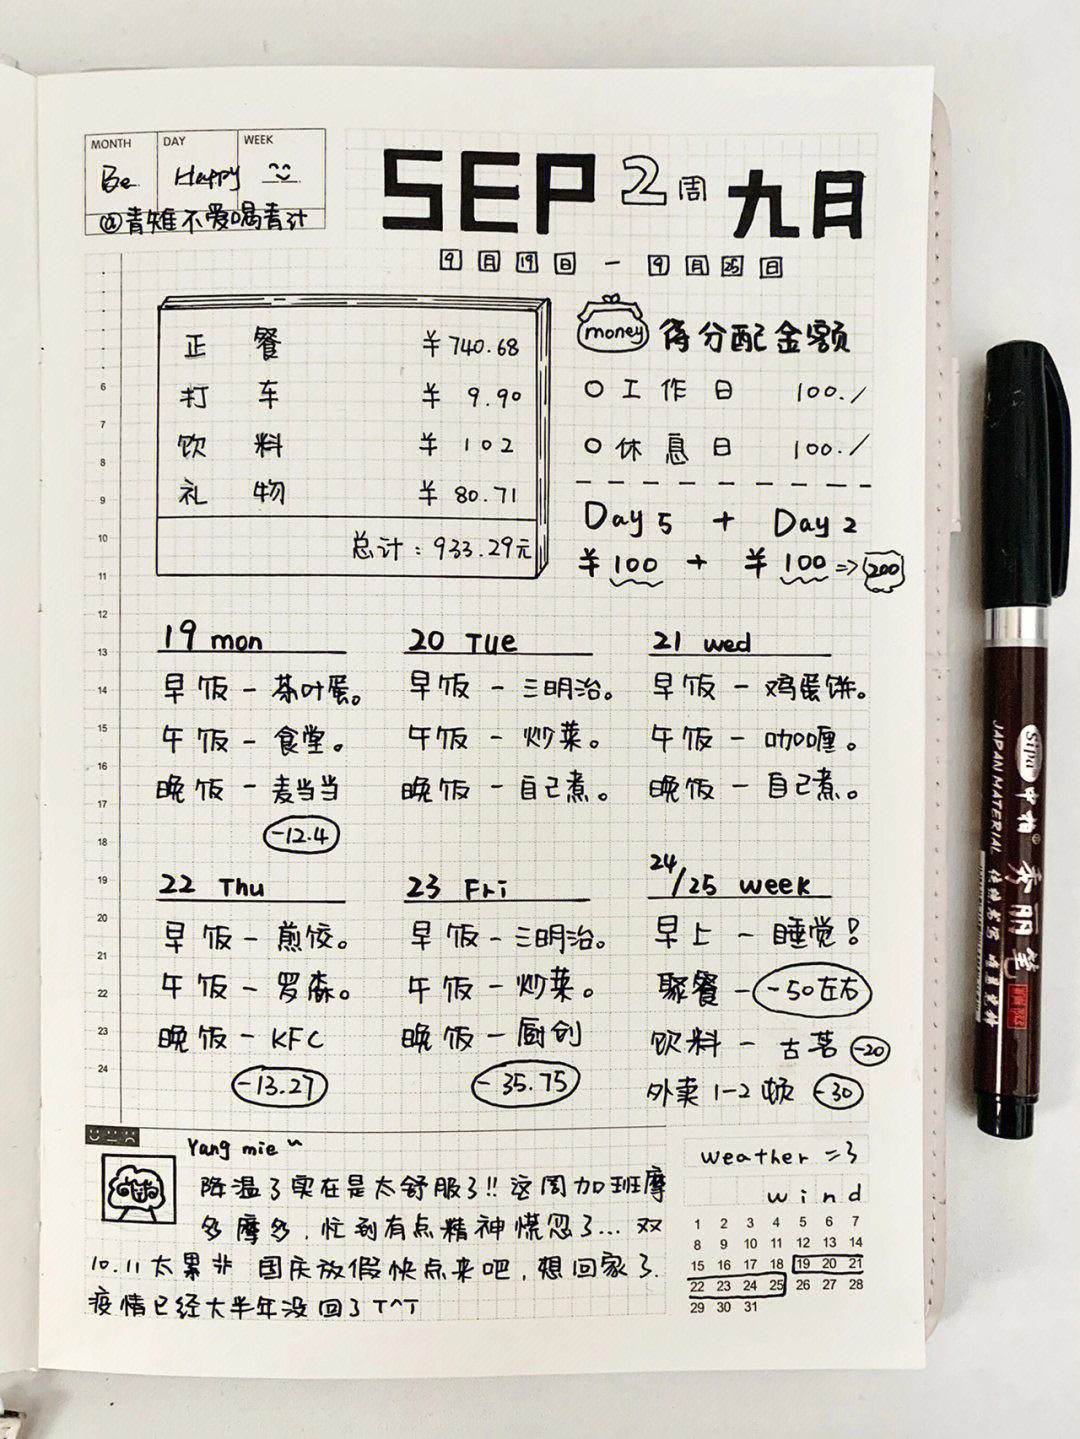 MONTH DAY WEEK
Be Happy
@青雉不爱喝青汁
SEP 2周 九月
9月19日 - 9月25日
正餐 ¥740.68
打车 ¥ 9.90
饮料 ¥ 102
礼物 ¥ 80.71
总计：933.29元
money 待分配金额
工作日 100./
休息日 100./
Day 5 + Day 2
¥100 + ¥100 => 200
6
7
8
9
10
11
12
13
14
15
16
17
18
19
20
21
22
23
24
19 mon
早饭-茶叶蛋。
午饭-食堂。
晚饭-麦当当
-12.4
20 Tue
早饭-三明治。
午饭-炒菜。
晚饭-自己煮。
21 wed
早饭-鸡蛋饼。
午饭-咖喱。
晚饭-自己煮。
22 Thu
早饭-煎饺。
午饭-罗森。
晚饭-KFC
-13.27
23 Fri
早饭-三明治。
午饭-炒菜。
晚饭-厨创
-35.75
24/25 week
早上-睡觉!
聚餐--50左右
饮料-古茗 -20
外卖1-2顿 -30
Yang mie ~
降温了实在是太舒服了!!这周加班摩
多摩多,忙到有点精神慌忽了...双
10.11太累非 国庆放假快点来吧,想回家了.
疫情已经大半年没回了T^T
weather =3
wind
1 2 3 4 5 6 7
8 9 10 11 12 13 14
15 16 17 18 19 20 21
22 23 24 25 26 27 28
29 30 31
Sipa 中柏® 秀丽笔
JAPAN MATERIAL